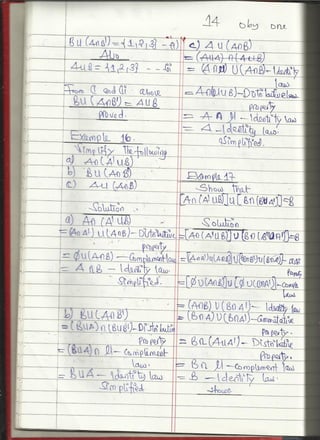 14 oby one
B∪(A∩B')={1,2,3} - i)
Also
A∪B={1,2,3} -- ii
From i and ii above
B∪(A∩B') = A∪B
proved.
Example 16.
Simplify the following
a) A∩(A'∪B)
b) B∪(A∩B')
c) A∪(A∩B)
Solution
a) A∩(A'∪B)
=(A∩A')∪(A∩B)-Distributive
property
= ∅∪(A∩B)-Complement law
= A∩B - Identity law
Simplified.
b) B∪(A∩B')
=(B∪A)∩(B∪B')-Distributive
Property
=(B∪A)∩μ-complement
law.
= B∪A-Identity law
Simplified
c) A∪(A∩B)
=(A∪A)∩(A∪B)
=(A∩μ)∪(A∩B)-Identity
law
=A∩(μ∪B)-Distributive
property
= A∩μ-Identity law
= A-Identity law.
Simplified.
Example 17
Show that
[A∩(A'∪B)]∪[B∩(B'∪A')]=B
Solution
=[A∩(A'∪B)]∪[B∩(B'∪A')]=B
=[(A∩A')∪(A∩B)]∪[(B∩B')∪(B∩A')]-
=[∅∪(A∩B)]∪[∅∪(B∩A')]-comple
law
=(A∩B)∪(B∩A')-Identity law
=(B∩A)∪(B∩A')-Commutative
Property-
= B∩(A∪A')-Distributive
Property.
= B∩μ-complement law
= B-Identity law.
shown